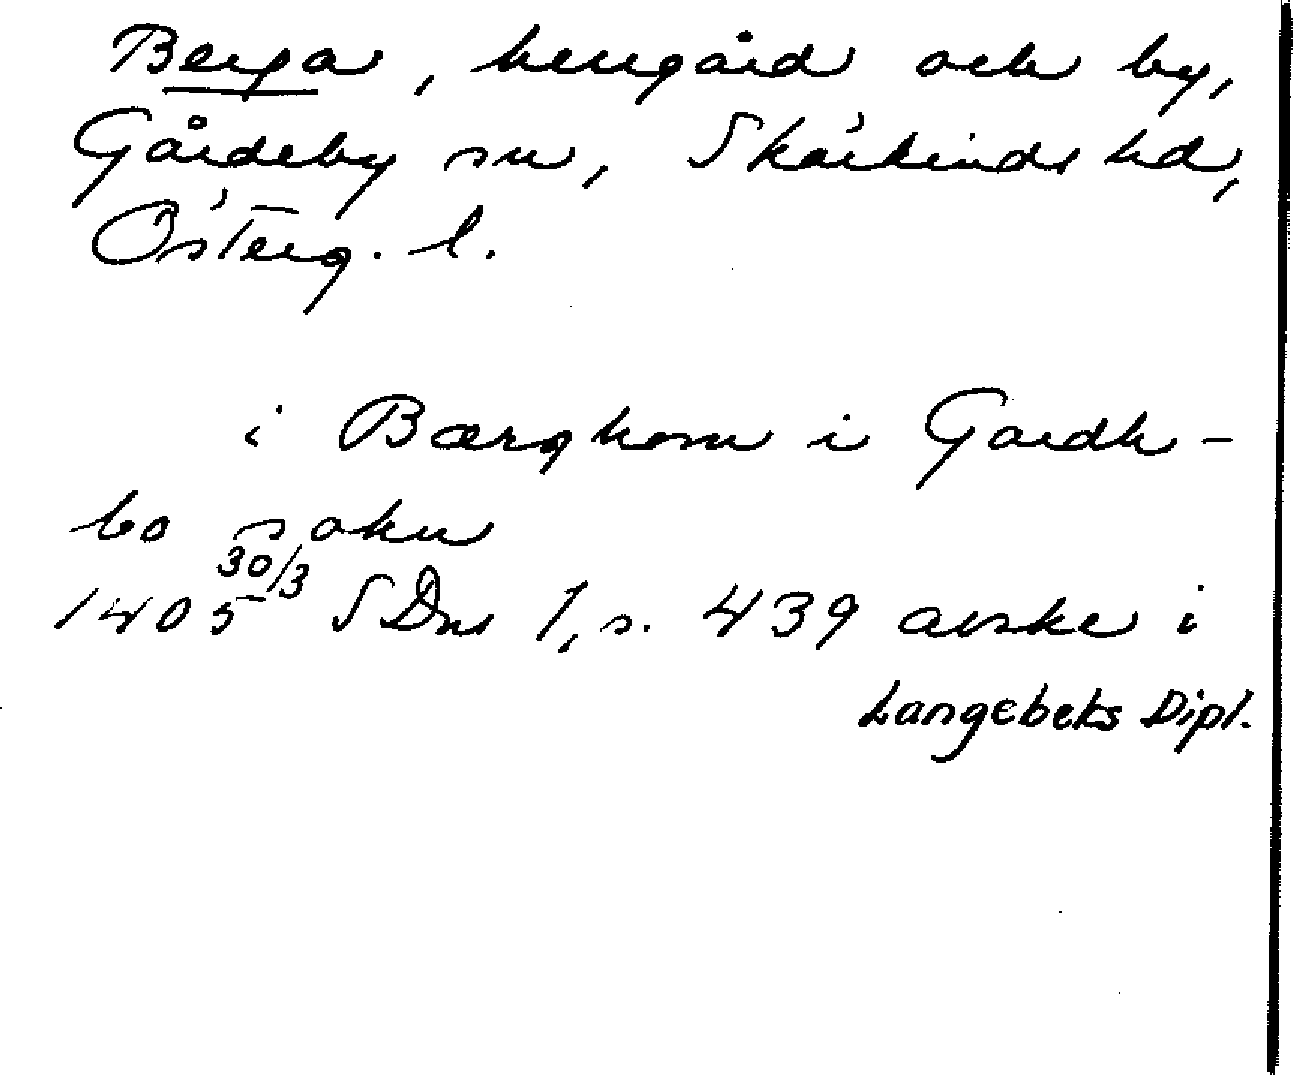 Berga, herrgård och by,
Gårdeby sn, Skärkinds hd,
Österg. l.
i Bærghom i Gardh-
bo sokn
1405 30/3 SDns 1, s. 439 avskr i
Langebeks Dipl.